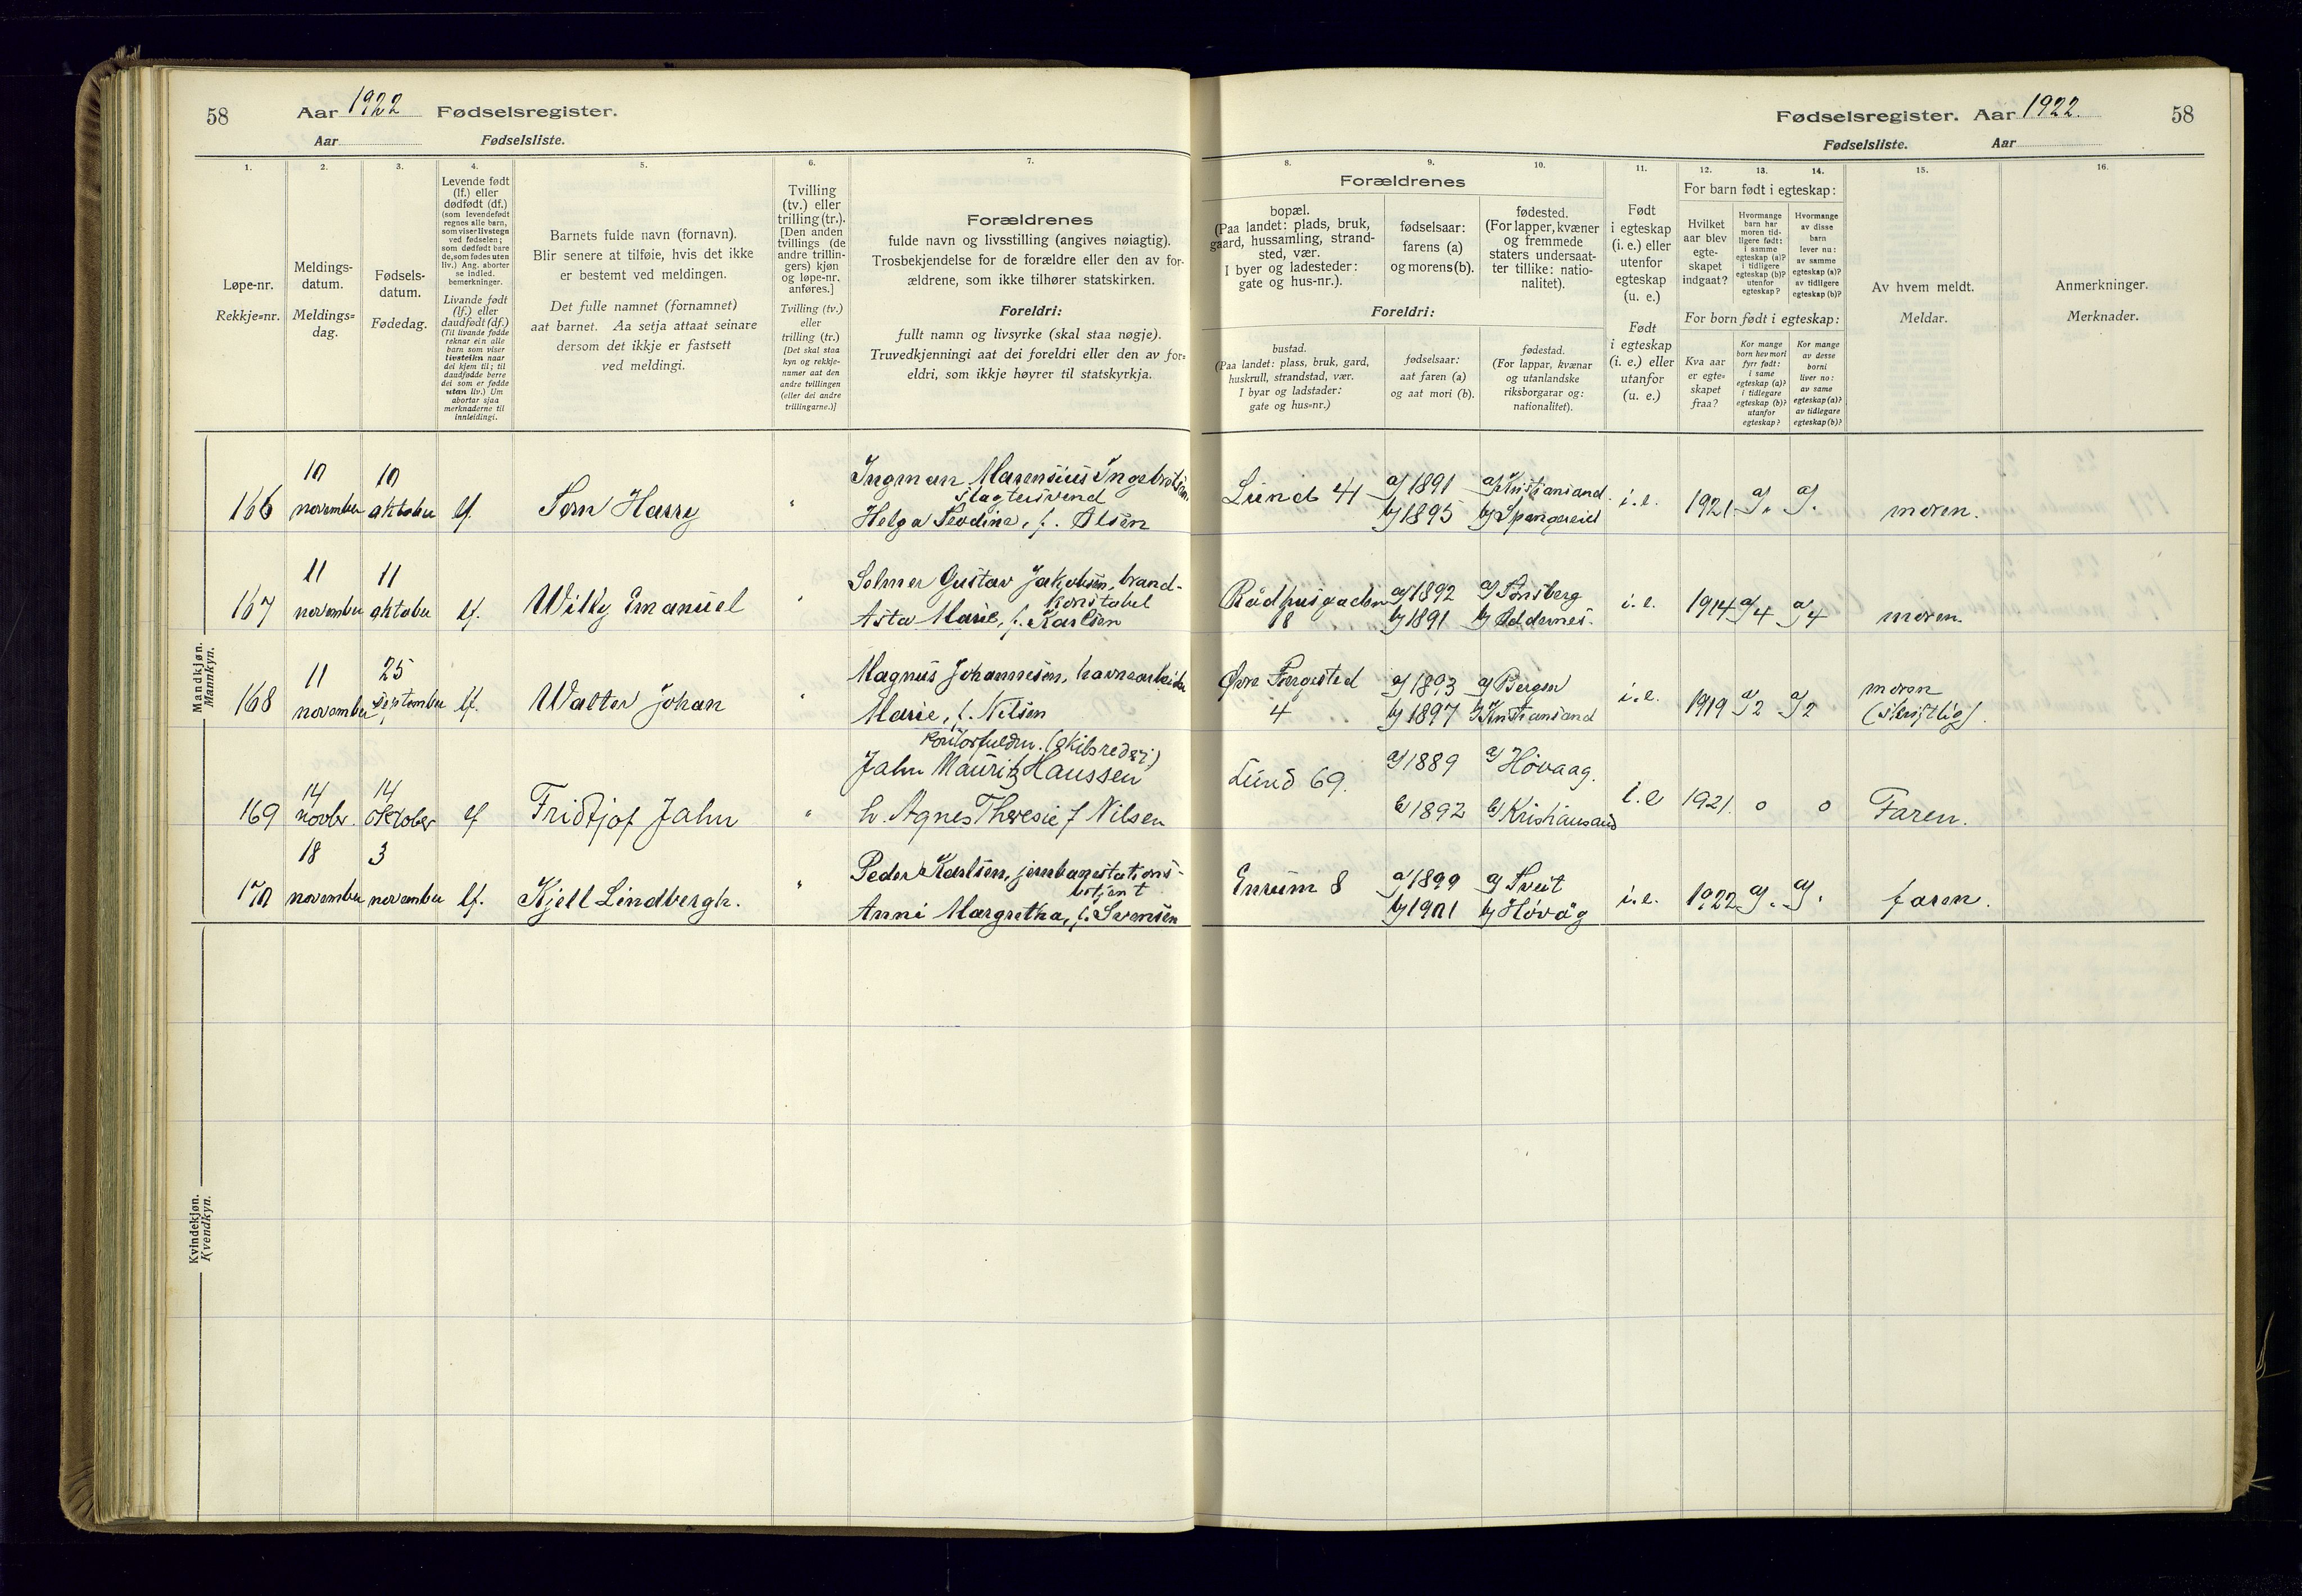 58 Aar 1922 Fødselsregister.
Aar Fødselsliste.
Fødselsregister. Aar 1922. 58
Fødselsliste. Aar
1. 2. 3. 4. 5. 6. 7.
8. 9. 10. 11. 12. 13. 14. 15. 16.
Løpe-nr.
Rekkje=nr.
Meldings-
datum.
Meldings=
dag.
Fødsels-
datum.
Fødedag.
Levende født
(lf.) eller
dødfødt (df.)
(som levendefødt
regnes alle barn,
som viser livstegn
ved fødselen;
som dødfødt bare
de, som fødes uten
liv.) Ang. aborter
se indled.
bemerkninger.
Livande født
(lf.) eller
daudfødt (df.)
(Til livande fødde
reknar ein alle
barn som viser
livsteikn naar
dei kjem til; til
daudfødde berre
dei som er fødde
utan liv.) Um
abortar sjaa
merknaderne til
innleidingi.
Barnets fulde navn (fornavn).
Blir senere at tilføie, hvis det ikke
er bestemt ved meldingen.
Det fulle namnet (fornamnet)
aat barnet. Aa setja attaat seinare
dersom det ikkje er fastsett
ved meldingi.
Tvilling
(tv.) eller
trilling (tr.).
[Den anden
tvillings (de
andre trillin-
gers) kjøn
og løpe-nr.
anføres.]
Tvilling (tv.)
eller
trilling (tr.)
[Det skal staa
kyn og rekkje-
numer aat den
andre tvillingen
(eller dei andre
trillingarne.)]
Forældrenes
fulde navn og livsstilling (angives nøiagtig).
Trosbekjendelse for de forældre eller den av for-
ældrene, som ikke tilhører statskirken.
Foreldri:
fullt namn og livsyrke (skal staa nøgje).
Truvedkjenningi aat dei foreldri eller den av for=
eldri, som ikkje høyrer til statskyrkja.
Forældrenes
bopæl.
(Paa landet: plads, bruk,
gaard, hussamling, strand-
sted, vær.
I byer og ladesteder:
gate og hus-nr.).
fødselsaar:
farens (a)
og morens (b).
fødested.
(For lapper, kvæner
og fremmede
staters undersaat-
ter tillike: natio-
nalitet).
Foreldri:
bustad.
(Paa landet: plass, bruk, gard,
huskrull, strandstad, vær.
I byar og ladstader:
gate og hus=nr.)
fødselsaar:
aat faren (a)
og aat mori (b).
fødestad.
(For lappar, kvænar
og utanlandske
riksborgarar og:
nationalitet).
Født
i egteskap
(i. e.) eller
utenfor
egteskap
(u. e.)
Født
i egteskap
(i. e.) eller
utanfor
(u. e.)
For barn født i egteskap:
Hvilket
aar blev
egte-
skapet
indgaat?
Hvormange
barn har
moren tid-
ligere født:
i samme
egteskap (a)?
i tidligere
egteskap (b)?
utenfor
egteskap?
Hvormange
av disse
barn
lever nu:
av samme
egteskap (a)?
av tidligere
egteskap (b)?
For born født i egteskap:
Kva aar
er egte=
skapet
fraa?
Kor mange
born hev mori
fyrr født:
i same
egteskap (a)?
i tidlegare
egteskap (b)?
utanfor
egteskap?
Kor mange
av desse
borni
liver no:
av same
egteskap (a)?
av tidlegare
egteskap (b)?
Av hvem meldt.
Meldar.
Anmerkninger.
Merknader.
Mandkjøn.
Mannkyn.
10 10 Ingman Marensius Ingebretsen
166 november oktober lf. Tom Harry " slagtersvend
Helga Teodine, f. Olsen
Lund 41 a) 1891 a) Kristiansand i.e. 1921 a). a). moren.
b) 1895 b) Spangereid
11 11 Selmer Gustav Jakobsen, brand-
167 november oktober lf. Willy Emanuel " konstabel
Asta Marie, f. Karlsen
Rådhusgaden a) 1892 a) Tønsberg i.e. 1914 a) 4 a) 4 moren.
18 b) 1891 b) Oddernes.
11 25 Magnus Johannesen, havnearbeider
168 november september lf. Walter Johan "
Marie, f. Nilsen
Øvre Torgisted a) 1893 a) Bergen i.e. 1919 a) 2 a) 2 moren
4 b) 1897 b) Kristiansand (skriftlig).
kontorfuldm. (skibsrederi)
14 14 Jahn Mauritz Haussen
169 novbr. oktober lf Fridtjof Jahn " h. Agnes Theresie f Nilsen
Lund 69. a) 1889 a) Høvaag. i.e 1921. 0 0 Faren.
b) 1892 b) Kristiansand
18 3 Peder Karlsen, jernbanestations-
170 november november lf. Kjell Lindbergh. " betjent
Anni Margretha, f. Svensen
Enrum 8 a) 1899 a) Tveit i.e. 1922 a). a). faren.
b) 1901 b) Høvåg
Kvindekjøn.
Kvendkyn.